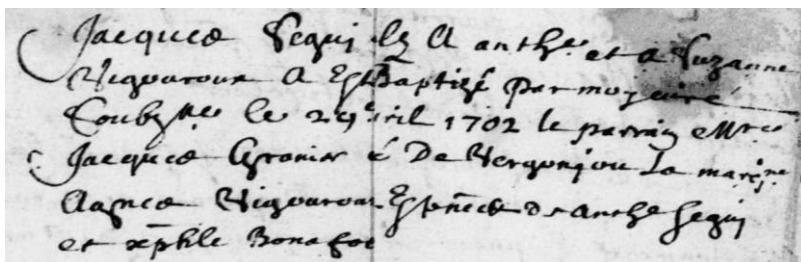 Jacques Segui filz A anthe. et a Suzanne
Vigouroux A Est Baptizé par moy curé
le 29 avril 1702 le parrain Mre
Jacques Granier é De Vergonjou La marine
Agnes Vigouroux Espnces de anthe Segui
et Bonafoe